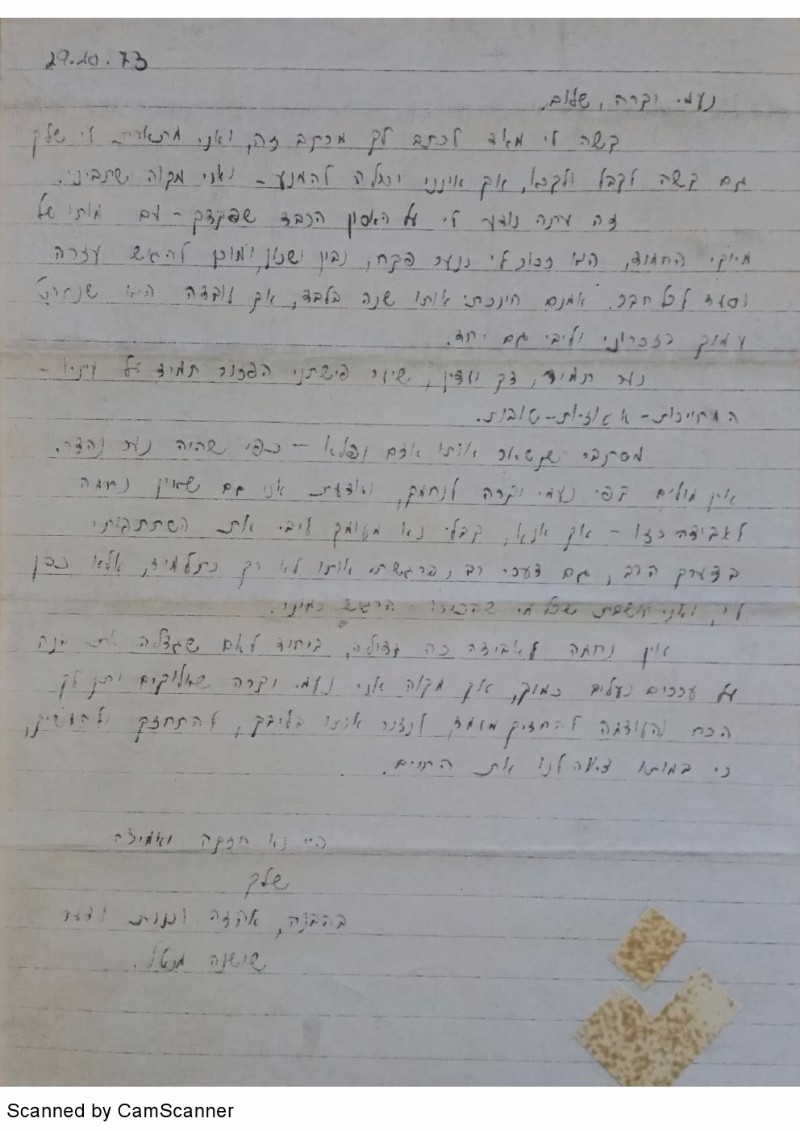 29.10.73
נעמי יקרה, שלום,
קשה לי מאוד לכתב לך מכתב זה, ואני מתארת לי שלך
גם קשה לקבל ולקרא, אך אינני יכולה להמנע - ואני מקוה שתביני.
זה עתה נודע לי על האסון הכבד שפקדך - עם מותו של
מיוקי החמוד, הוא זכור לי כנער פקח, נבון ושנון, ומוכן להגיש עזרה
וסעד לכל חבר. אמנם חינכתי אותו שנה בלבד, אך עובדה היא שנחרט
עמוק בזכרוני וליבי גם יחד.
נער תמיר, דק ועדין, שיער פישתני הפזור תמיד על עיניו -
המחייכות - אגוזיות - טובות.
מסתבר שנשאר אותו אדם נפלא - כפי שהיה נער נהדר.
אין מולים בפי נעמי יקרה לנחמך, ויודעת אני גם שאין נחמה
לאבידה כזו - אך אנא, קבלי נא מעומק ליבי את השתתפותי
בצערך הרב, גם צערי רב, פרגשתי אותו לא רק כתלמיד, אלא כבן
לי, ואני חושבת שכל מי שהכירו - הרגיש כמוני.
אין נחמה לאבידה כה גדולה, ביחוד לאם שגדלה את בנה
על ערכים נעלים כמוך, אך מקוה אני נעמי יקרה שאלוקים יתן לך
הכח להחזיק מעמד, לנצור אותו בליבך, להתחזק ולהמשיך,
כי במותו ציוה לנו את החיים.
היי נא חזקה ואמיצה
שלך
בהבנה, אהדה וצער
שושנה מנטל.
Scanned by CamScanner